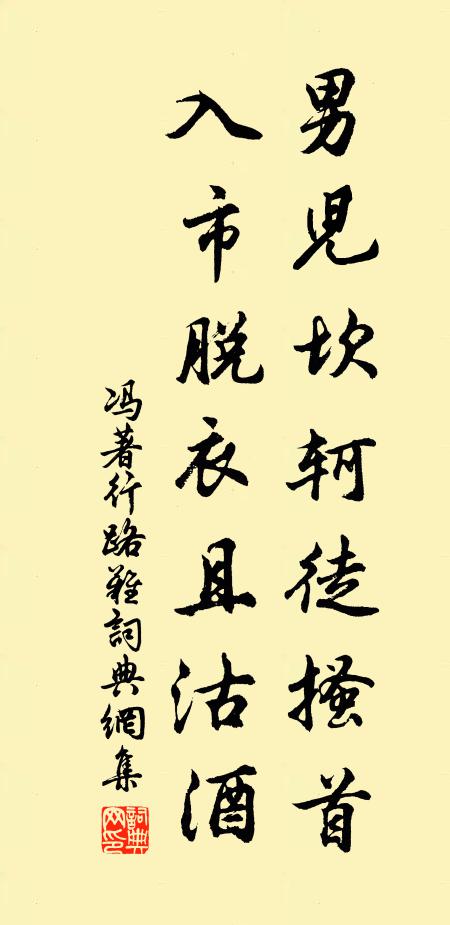 男児坎軻徒搔首
入市脱衣且沽酒
冯著行路難詞典網集
詞典網印